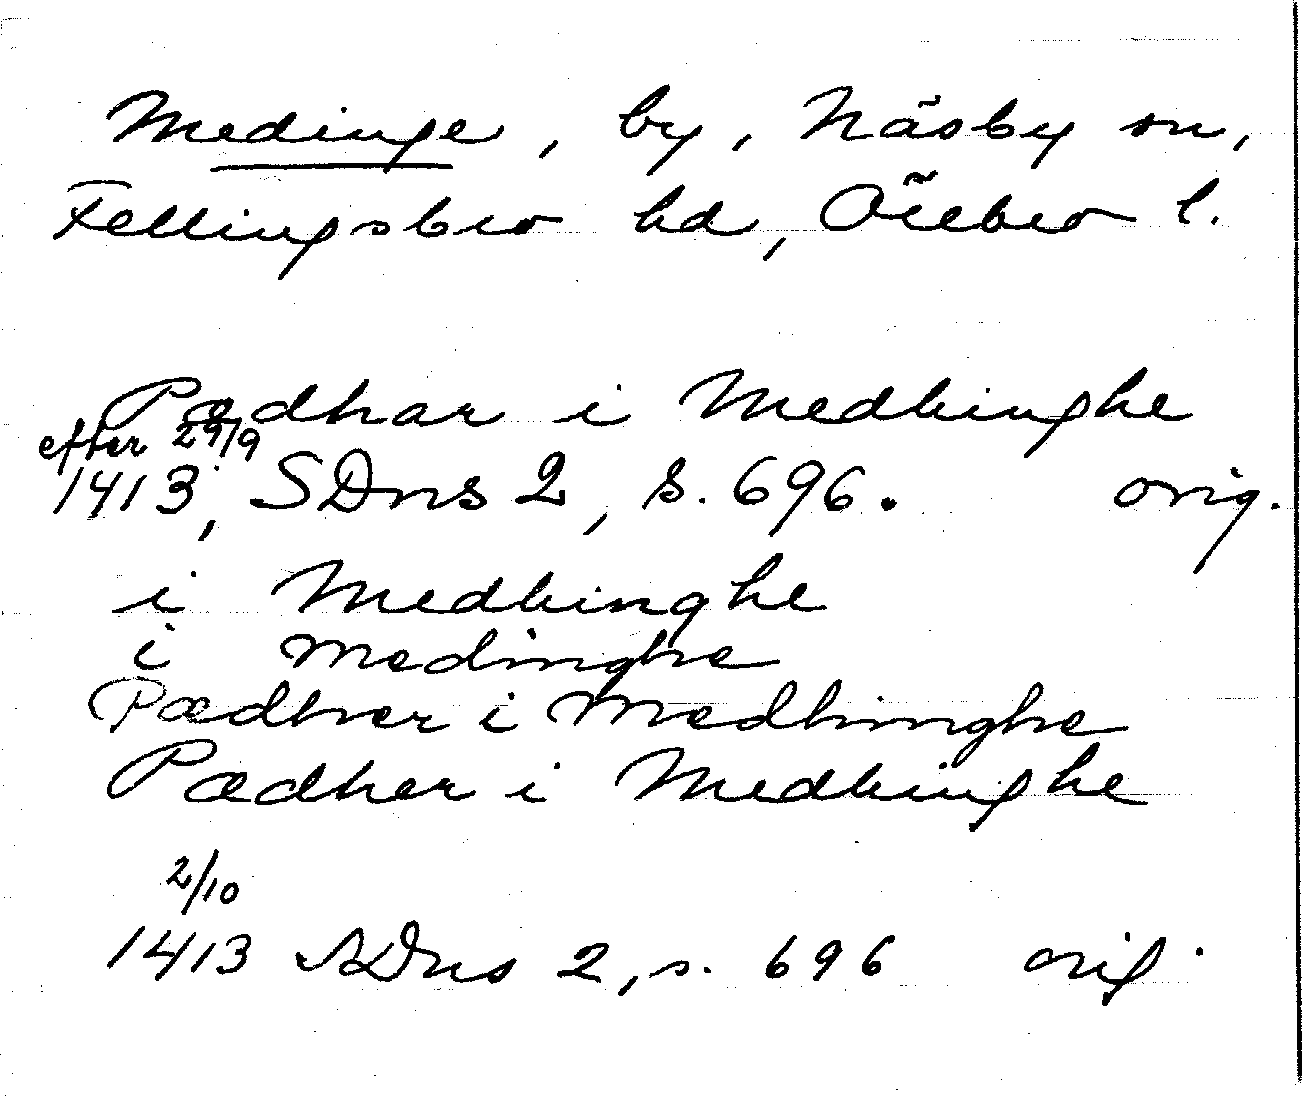 Medinge, by, Näsby sn,
Fellingsbro hd, Örebro l.
Pædhar i Medhinghe
efter 29/9
1413, SDns 2, s. 696. orig.
i Medhinghe
i Medinghe
Pædher i Medhinghe
Pædher i Medhinghe
2/10
1413 SDns 2, s. 696 orig.